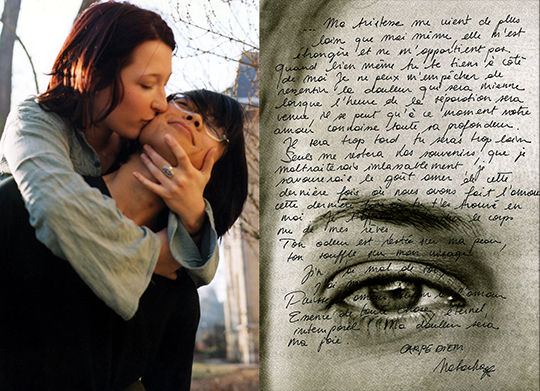 ... Ma tristesse me vient de plus
loin que moi même, elle m'est
étrangère et ne m'appartient pas,
quand bien même tu te tiens à côté
de moi. Je ne peux m'empêcher de
ressentir la douleur qui sera mienne
lorsque l'heure de la séparation sera
venue, il se peut qu'à ce moment notre
amour connaisse toute sa profondeur.
Il sera trop tard, tu seras trop loin.
Seuls me restera des souvenirs que je
maltraiterais inlassablement, j'
savourerais le goût amer de cette
dernière fois où nous avons fait l'amour
cette dernière
moi le corps
nu de mes rêves.
Ton odeur est restée sur ma peau,
ton souffle sur mon visage.
J'ai mal de
l'amour
Essence de toute chose, éternel
intemporel. Ma douleur sera
ma joie.
CARPE DIEM